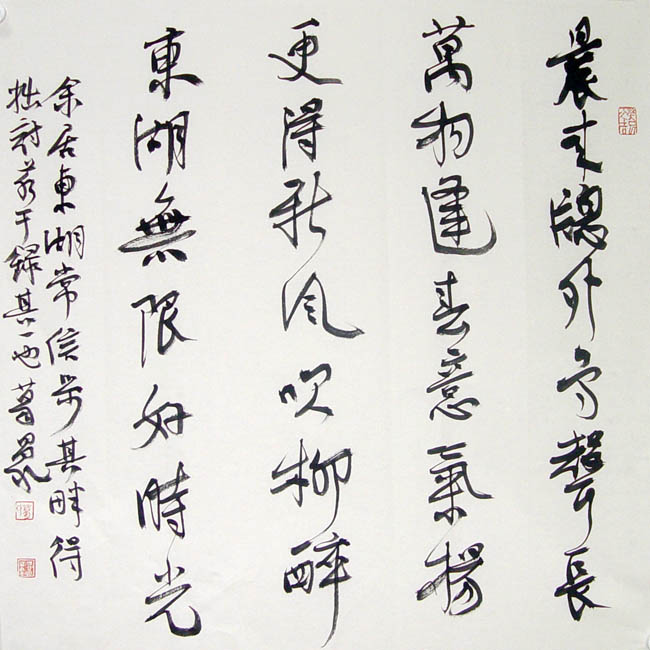 晨來牕外鳥聲長
萬物逢春意氣揚
更得新風吹柳醉
東湖無限好時光
余居東湖常信步其畔得
拙詩若干錄其一也葛